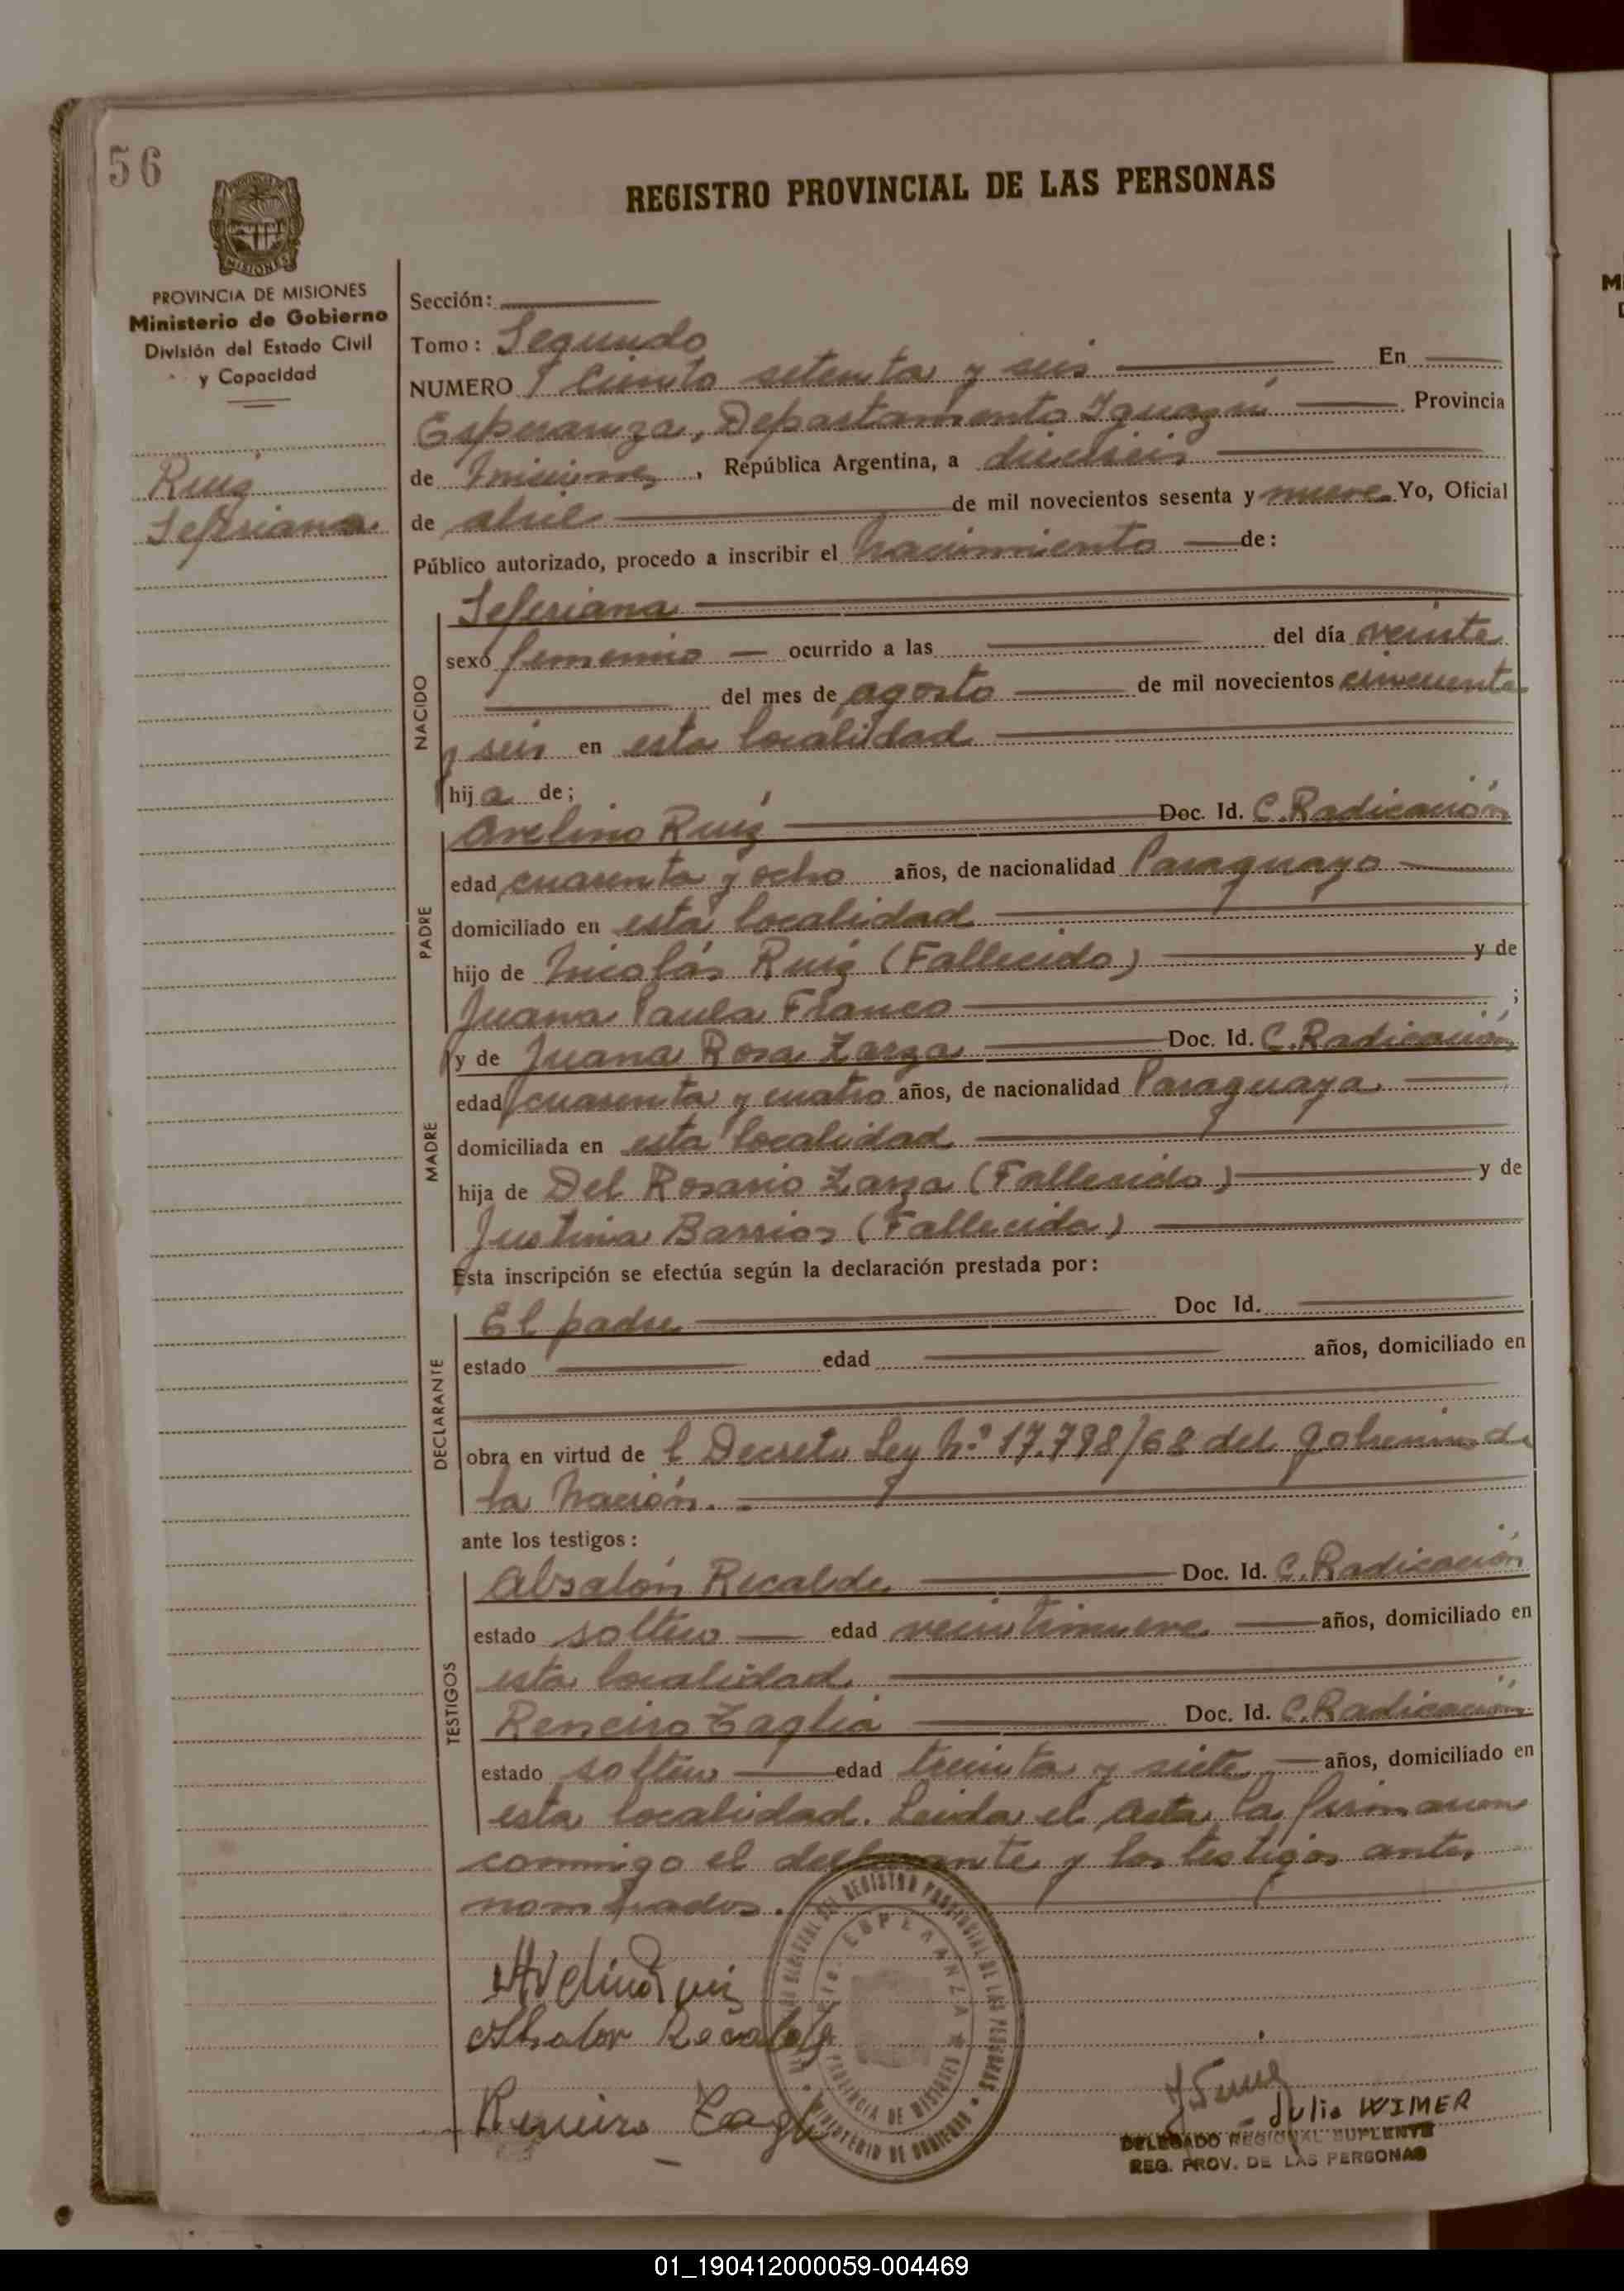 56
REGISTRO PROVINCIAL DE LAS PERSONAS
MISIONES
PROVINCIA DE MISIONES
Ministerio de Gobierno
División del Estado Civil
y Capacidad
Ruiz
Seferiana
Sección:
Tomo: Segundo
NUMERO Ciento setenta y seis En
Esperanza, Departamento Iguazú Provincia
de Misiones, República Argentina, a dieciseis
de abril de mil novecientos sesenta y nueve Yo, Oficial
Público autorizado, procedo a inscribir el nacimiento de:
NACIDO
Seferiana
sexo femenino ocurrido a las del día veinte
del mes de agosto de mil novecientos cincuenta
y seis en esta localidad
hija de;
PADRE
Avelino Ruíz Doc. Id. C. Radicación
edad cuarenta y ocho años, de nacionalidad Paraguayo
domiciliado en esta localidad
hijo de Nicolás Ruiz (Fallecido) y de
Juana Paula Franco ;
MADRE
y de Juana Rosa Zarza Doc. Id. C. Radicación
edad cuarenta y cuatro años, de nacionalidad Paraguaya
domiciliada en esta localidad
hija de Del Rosario Zarza (Fallecido) y de
Justina Barrios (Fallecida)
Esta inscripción se efectúa según la declaración prestada por:
DECLARANTE
El padre Doc Id.
estado edad años, domiciliado en
obra en virtud de l Decreto Ley Nº 17.798/68 del gobierno de
la Nación.
ante los testigos:
TESTIGOS
Absalón Recalde Doc. Id. C. Radicación
estado soltero edad veintinueve años, domiciliado en
esta localidad
Reneiro Taglia Doc. Id. C. Radicación
estado soltero edad treinta y siete años, domiciliado en
esta localidad. Leida el acta la firmaron
conmigo el declarante y los testigos antes
nombrados.
Avelino Ruiz
Absalon Recalde
Reneiro Tagli
ESPERANZA
PROVINCIA DE MISIONES
MINISTERIO DE GOBIERNO
Julio WIMER
DELEGADO REGIONAL SUPLENTE
REG. PROV. DE LAS PERSONAS
01_190412000059-004469